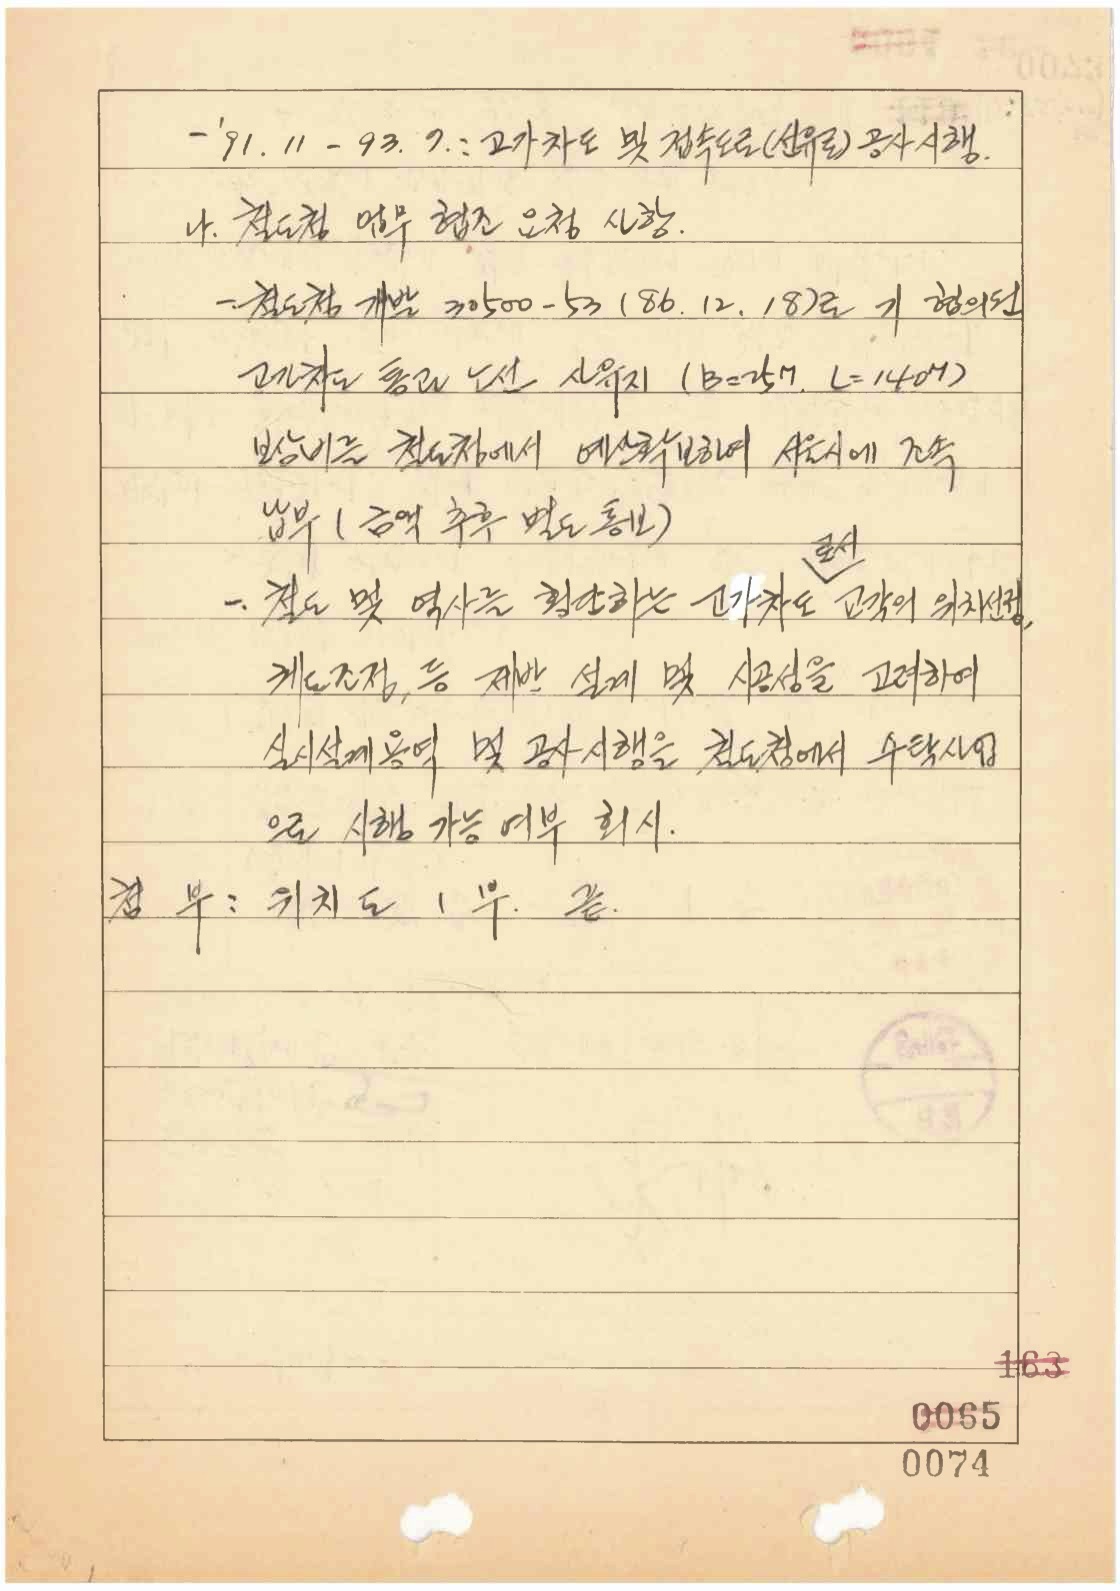 - '91. 11 - 93. 7. : 고가차도 및 접속도로(선유로) 공사시행.
나. 철도청 업무 협조 요청 사항.
- 철도청 개발 30500-53 (86. 12. 18)로 기 협의된
고가차도 통과 노선 사유지 (B=25m. L=140m)
보상비를 철도청에서 예산확보하여 서울시에 조속
납부 ( 금액 추후 별도 통보)
로서
-. 철도 및 역사를 횡단하는 고가차도 교각의 위치선정,
궤도조정, 등 제반 설계 및 시공성을 고려하여
실시설계용역 및 공사시행을 철도청에서 수탁사업
으로 시행 가능 여부 회시.
첨 부 : 위치도 1 부. 끝.
163
0065
0074